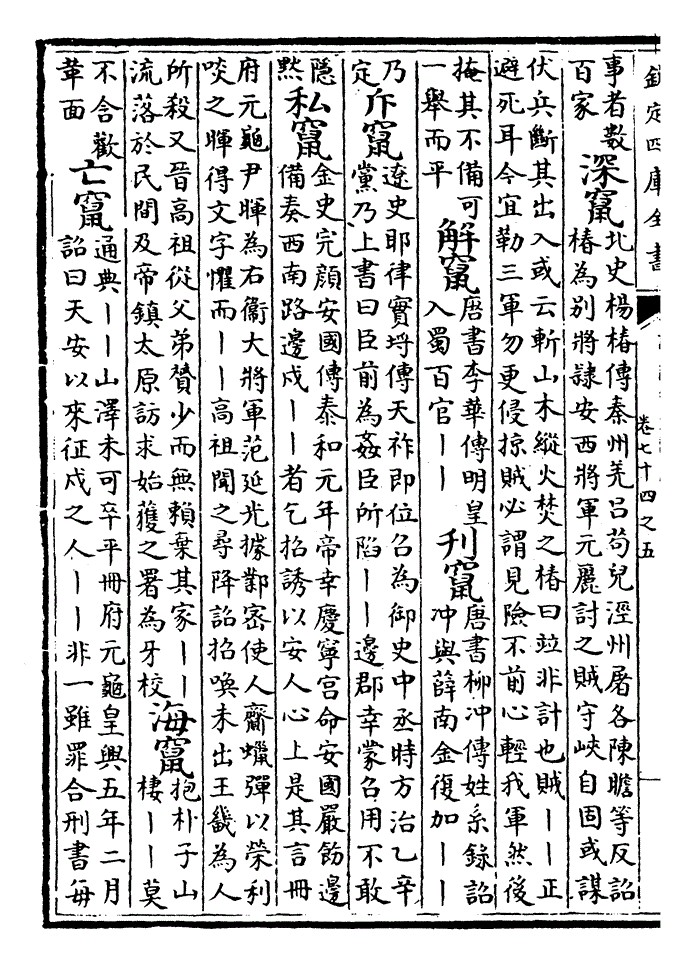 欽定四庫全書
卷七十四之五
事者數
百家
深竄
北史楊椿傳秦州羌吕苟兒涇州屠各陳瞻等反詔
椿為別將隷安西將軍元麗討之賊守峽自固或謀
伏兵斷其出入或云斬山木縱火焚之椿曰竝非計也賊丨丨正
避死耳今宜勒三軍勿更侵掠賊必謂見險不前心輕我軍然後
掩其不備可
一舉而平
解竄
唐書李華傳明皇
入蜀百官丨丨
刋竄
唐書柳冲傳姓系錄詔
冲與薛南金復加丨丨
乃
定
斥竄
遼史耶律實埒傳天祚即位召為御史中丞時方治乙辛
黨乃上書曰臣前為姦臣所陷丨丨邊郡幸蒙召用不敢
隠
黙
私竄
金史完顔安國傳泰和元年帝幸慶寧宫命安國嚴飭邊
備奏西南路邊戍丨丨者乞招誘以安人心上是其言冊
府元龜尹暉為右衞大將軍范延光據鄴密使人齎蠟彈以榮利
啖之暉得文字懼而丨丨高祖聞之尋降詔招喚未出王畿為人
所殺又晉高祖從父弟贇少而無賴棄其家丨丨
流落於民間及帝鎮太原訪求始獲之署為牙校
海竄
抱朴子山
棲丨丨莫
不含歡
革面
亡竄
通典丨丨山澤未可卒平冊府元龜皇興五年二月
詔曰天安以來征戍之人丨丨非一雖罪合刑書每